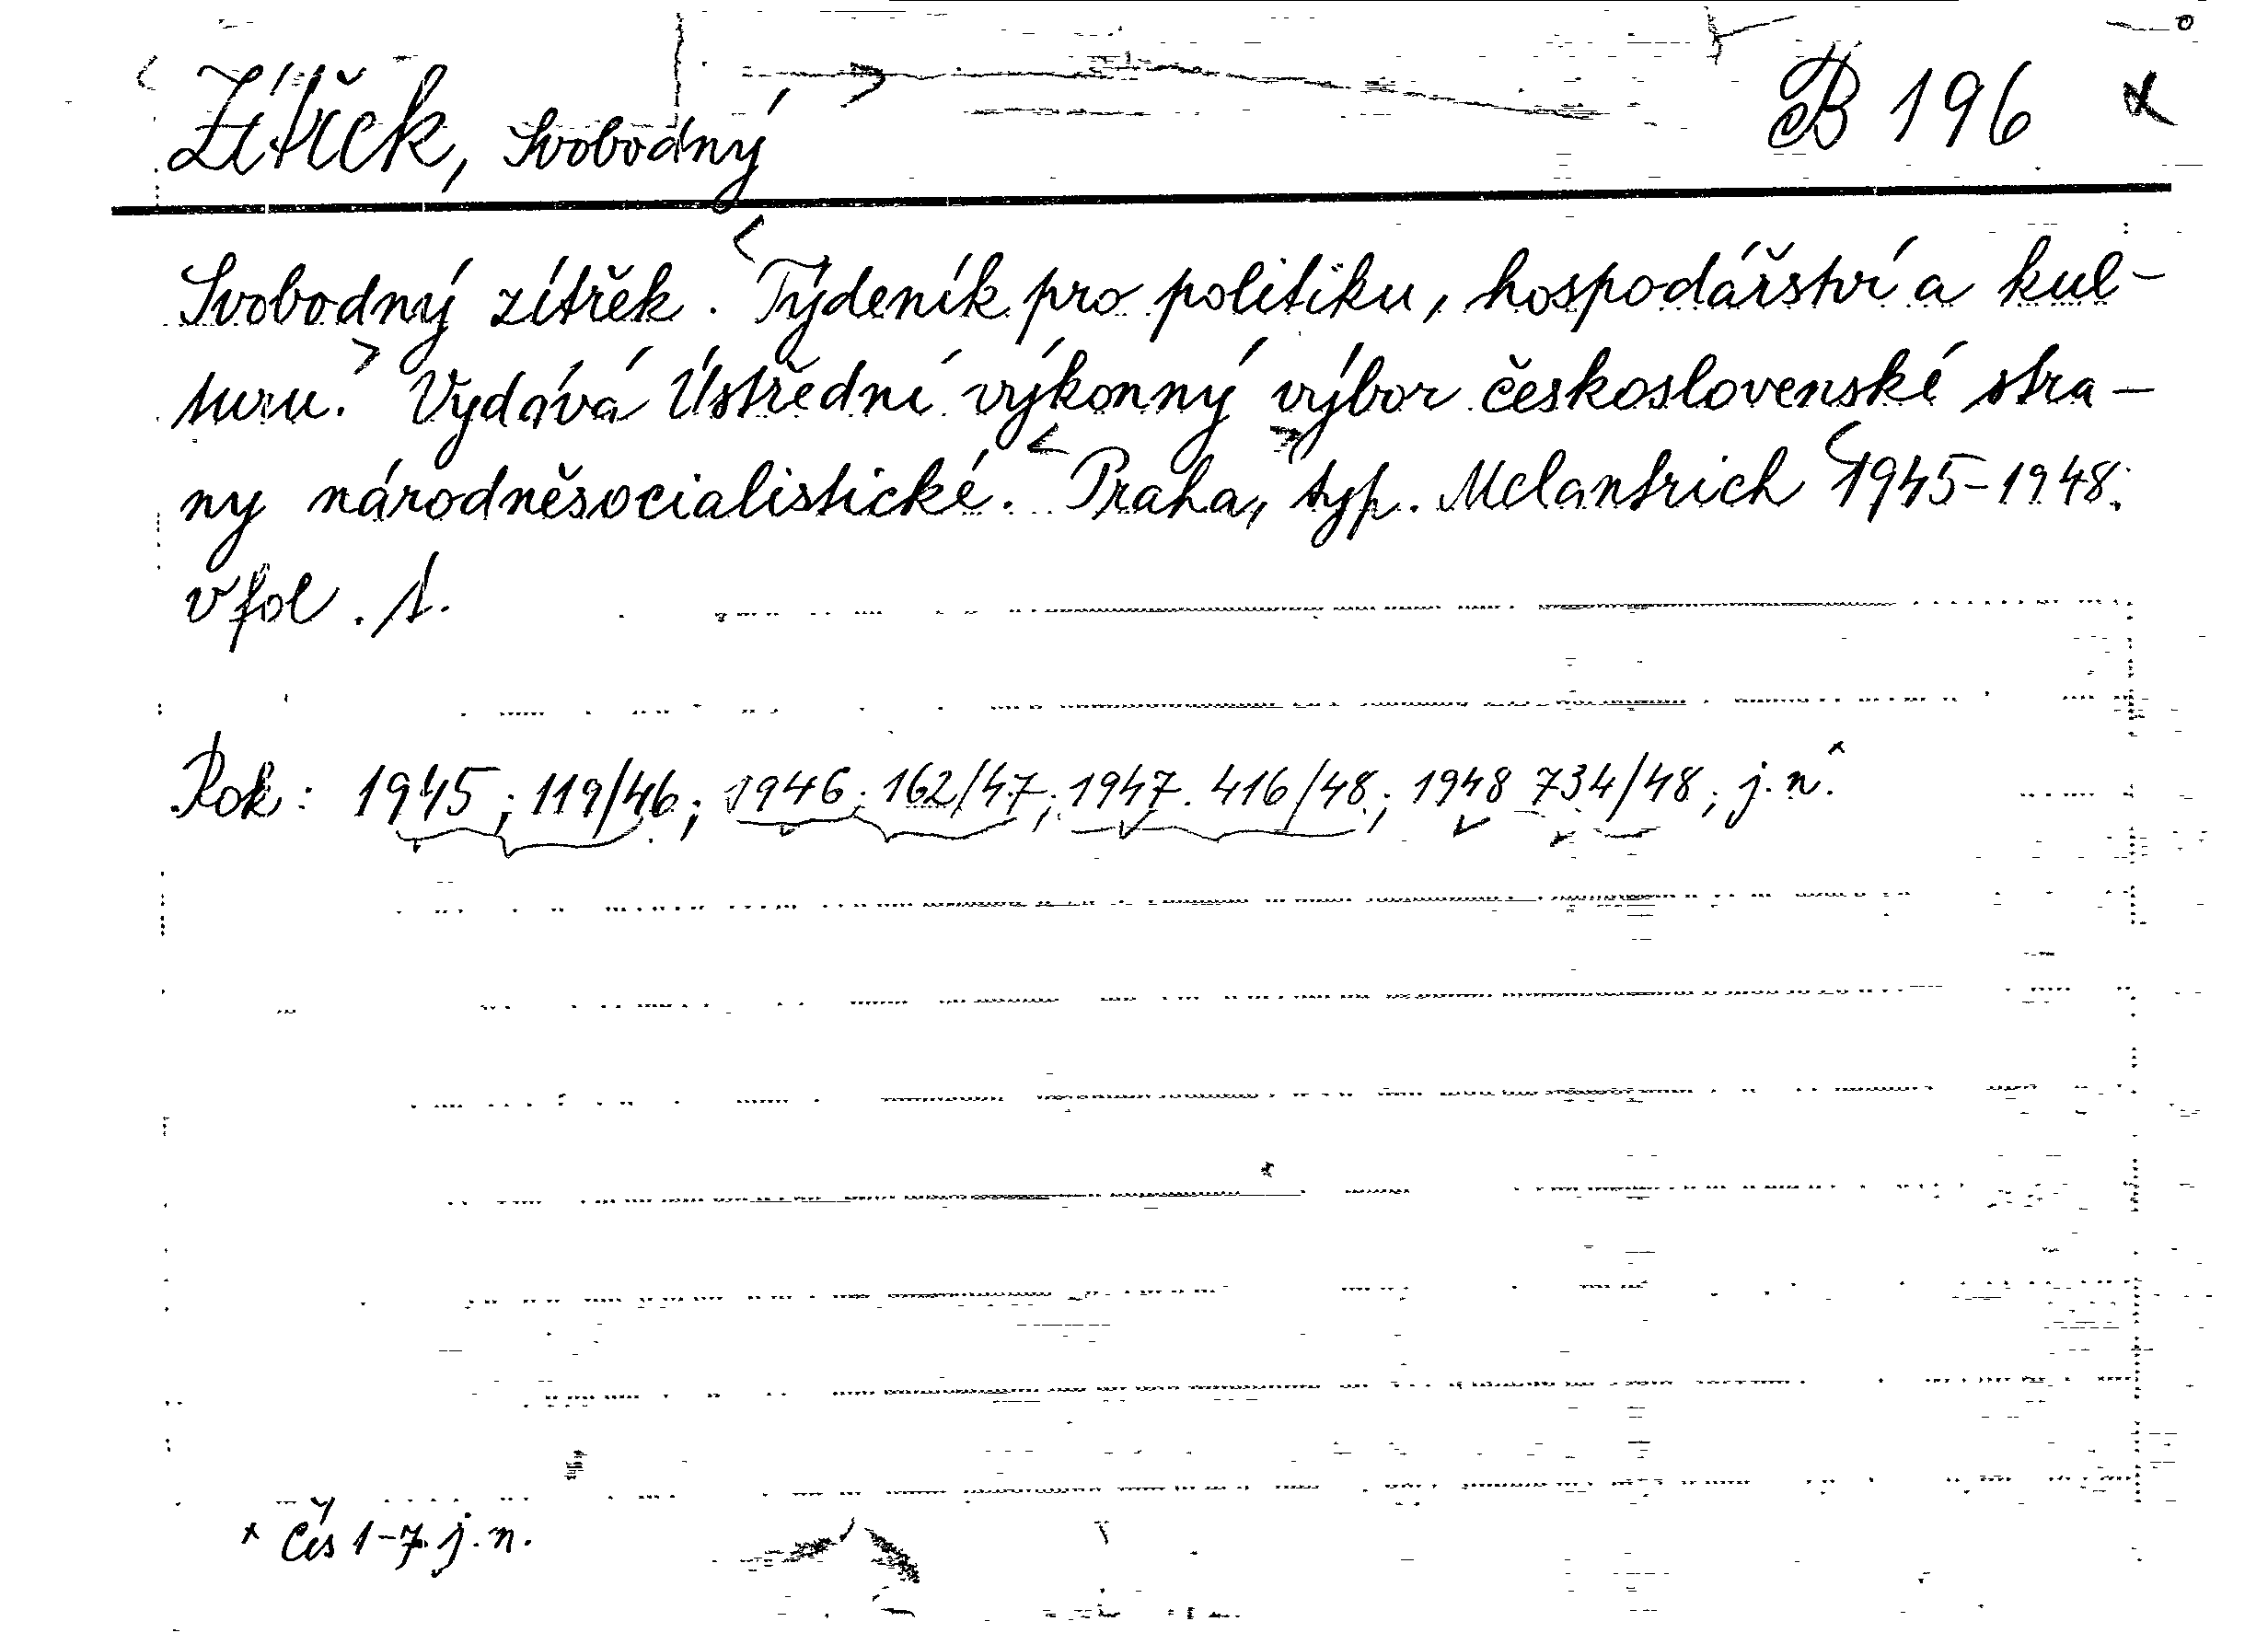 Zítřek, Svobodný B 196 x
Svobodný zítřek. Týdeník pro politiku, hospodářství a kul-
turu. Vydává Ústřední výkonný výbor československé stra-
ny národněsocialistické. Praha, typ. Melantrich 1945-1948.
v fol. 1.
Rok: 1945; 119/46; 1946; 162/47; 1947. 416/48; 1948 734/48; j. n. x
x Čís 1-7. j. n.